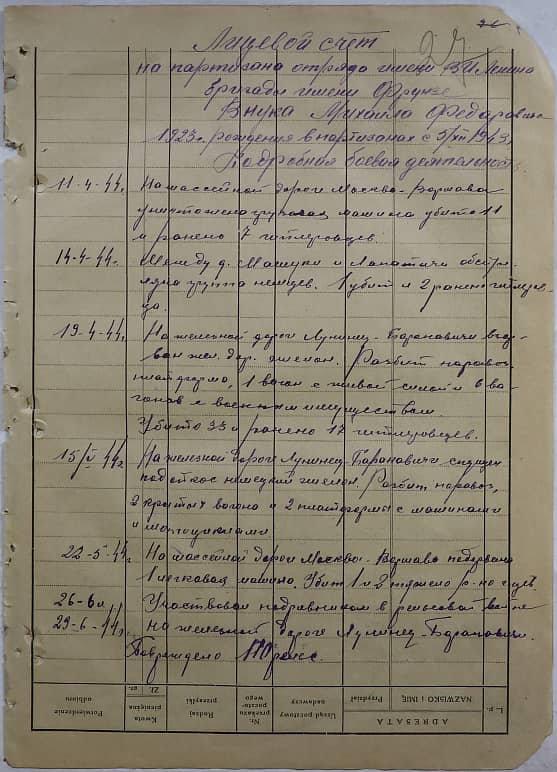 26
Лицевой счет
на партизана отряда имени В.И. Ленина
бригады имени Фрунзе
Внука Михаила Федаравича
1923 г. рождения в партизанах с 5/XII 1943 г.
Подробная боевая деятельность
11-4-44 г. На шассейной дороге Москва-Варшава
уничтожена грузовая машина убито 11
и ранено 7 гитлеровцев.
14-4-44 г. Между д. Машуки и Лапатичи обстре-
ляна группа немцев. 1 убит и 2 ранено гитлеров-
ца.
19-4-44 г. На железной дороге Лунинец-Барановичи взор-
ван жел. дор. эшелон. Разбит паровоз
платформа, 1 вагон с живой силой и 6 ва-
гонов с военным имуществом.
Убито 33 и ранено 17 гитлеровцев.
15/V 44 г. На железной дороге Лунинец-Барановичи спущен
под откос немецкий эшелон. Разбит паровоз,
2 крытых вагона и 2 платформы с машинами
и мотоциклами
22-5-44 г. На шассейной дороге Москва-Варшава подорвана
1 легковая машина. Убит 1 и 2 тяжело
26-6 и Участвовал подрывником в рельсовой войне
29-6-44 г. на железной дороге Лунинец-Барановичи.
Повреждено рельс.
L. p.
ADRESATA
NAZWISKO I IMIĘ
Przydział
Urząd pocztowy nadawczy
Nr. przekazu poczto-wego
Rodzaj przesyłki
Kwota pieniężna
Zł. gr.
Potwierdzenie odbioru